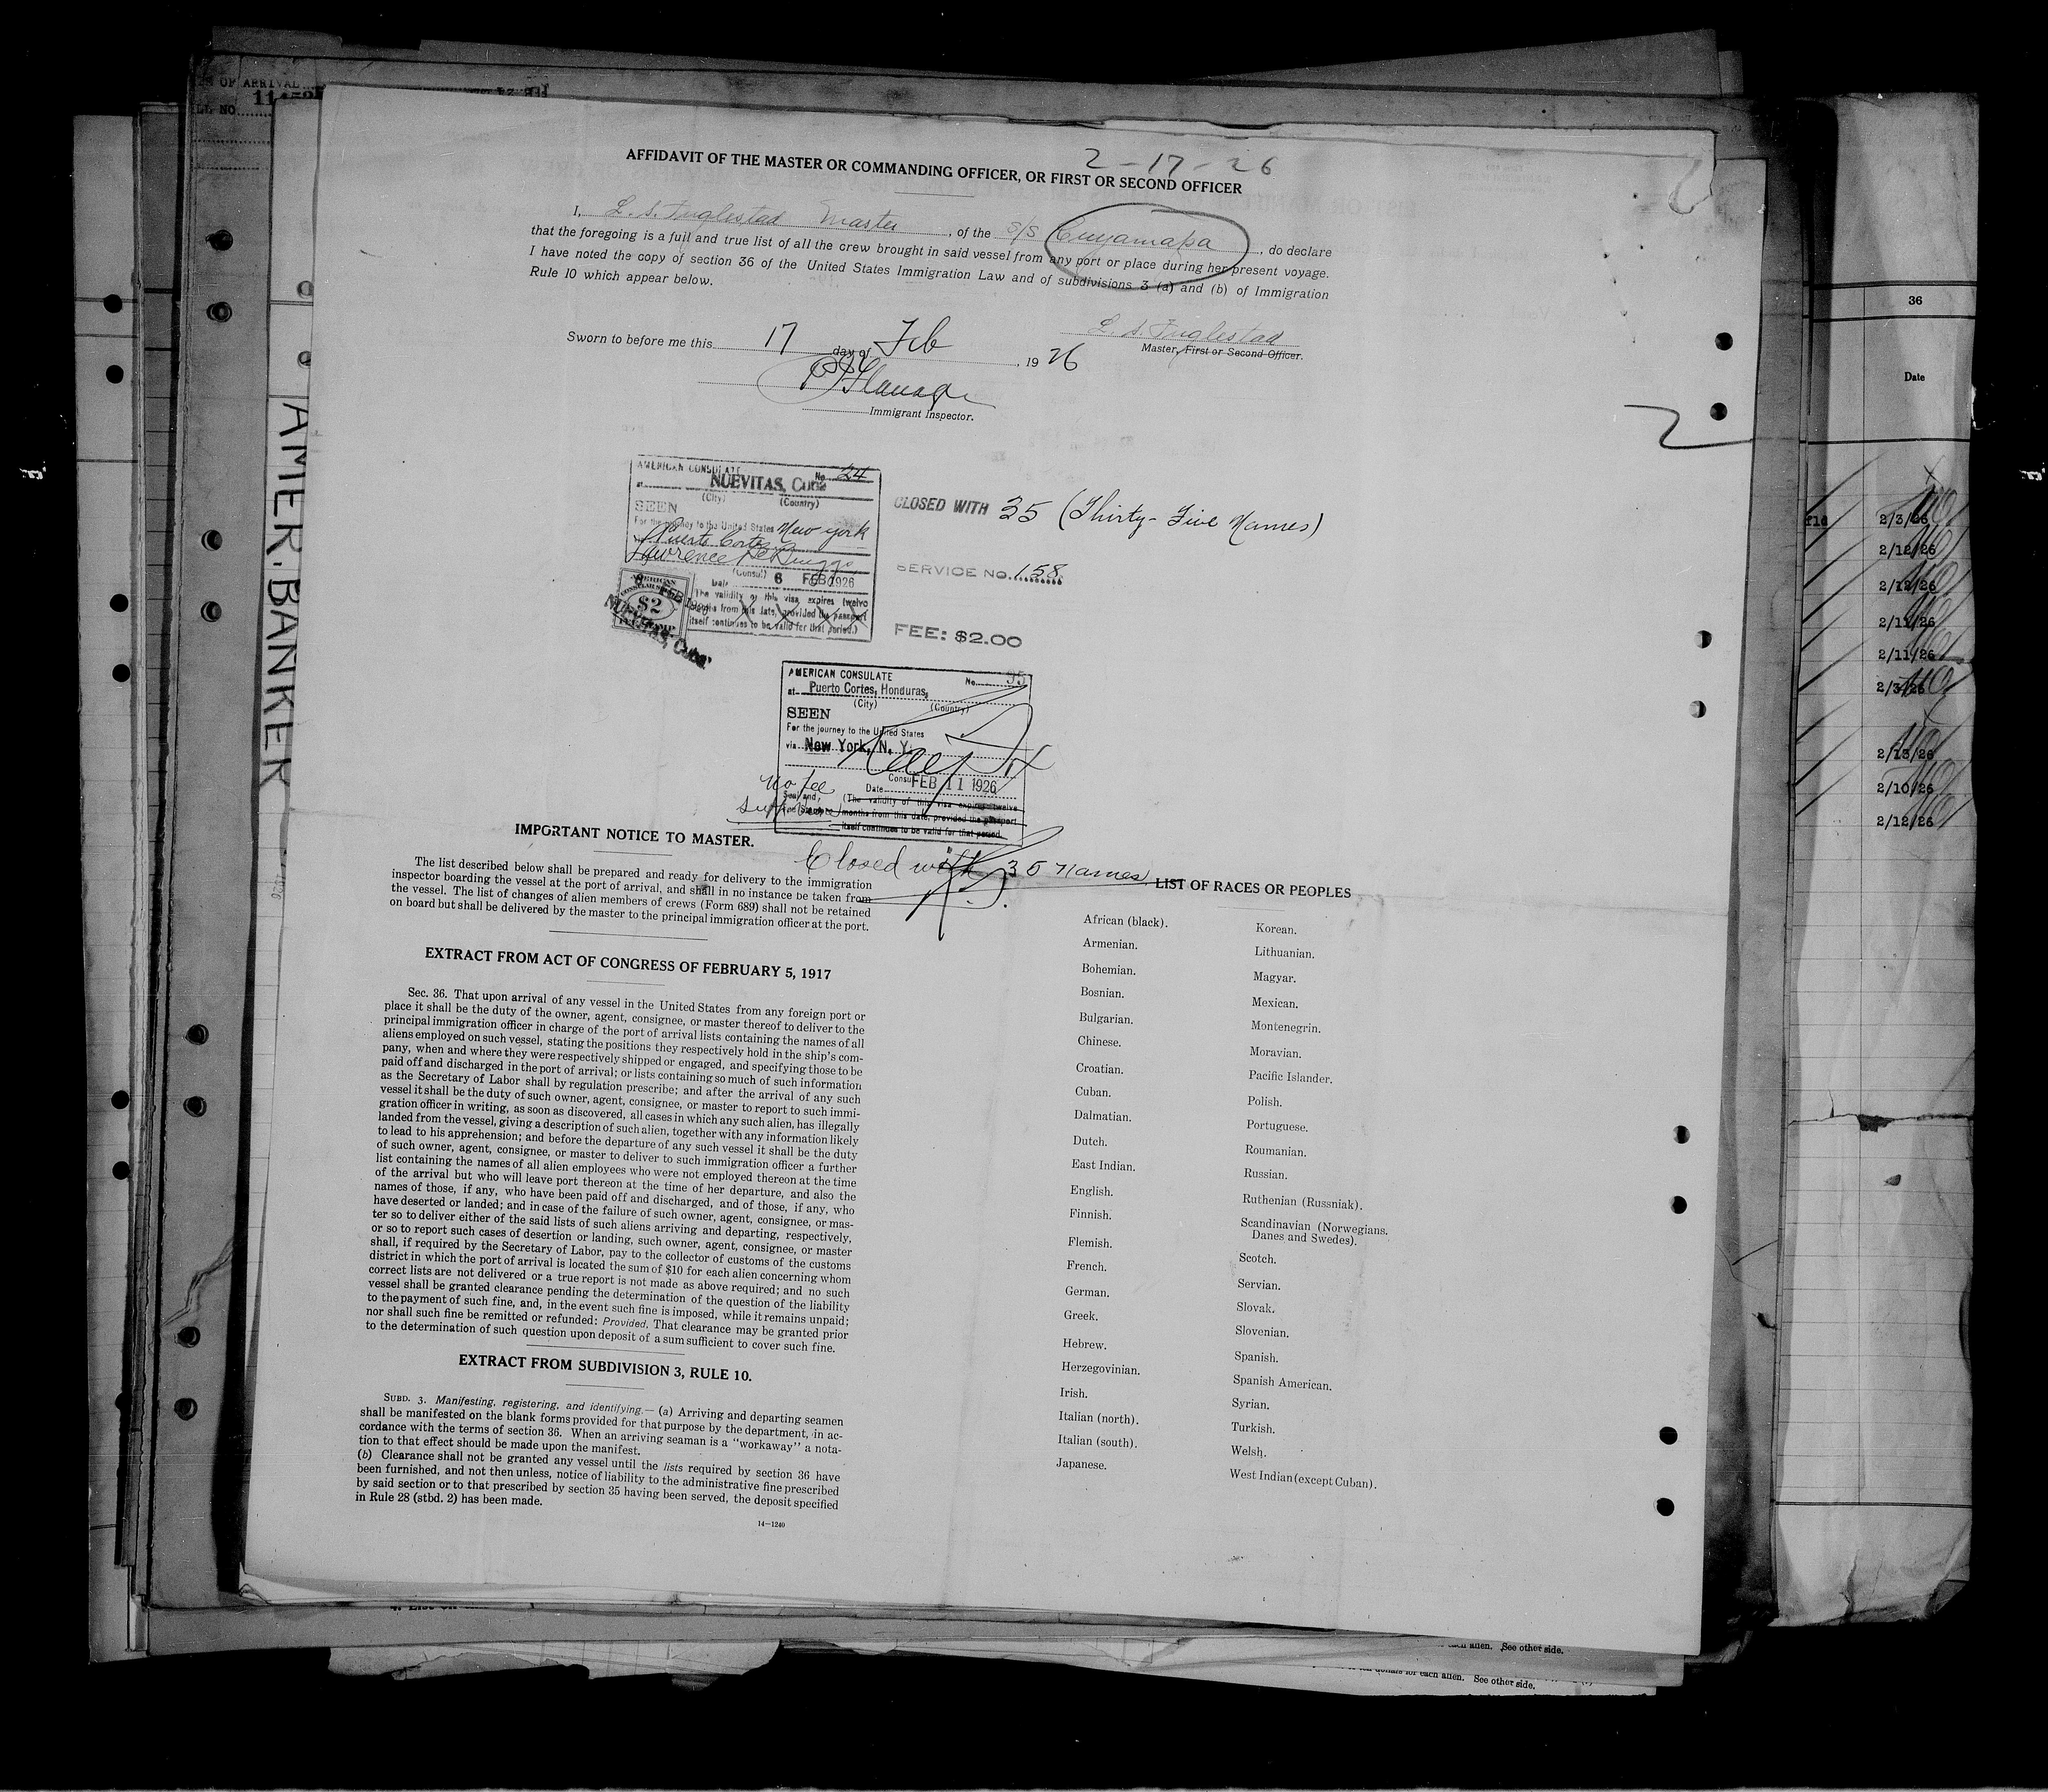 OF ARRIVAL
LL NO.
AMER. BANKER
2-17-26
AFFIDAVIT OF THE MASTER OR COMMANDING OFFICER, OR FIRST OR SECOND OFFICER
I, L. S. Inglestad Master, of the S/S Cuyamapa, do declare
that the foregoing is a full and true list of all the crew brought in said vessel from any port or place during her present voyage.
I have noted the copy of section 36 of the United States Immigration Law and of subdivisions 3 (a) and (b) of Immigration
Rule 10 which appear below.
L. S. Inglestad
Master, First or Second Officer.
Sworn to before me this 17 day of Feb, 1926
Immigrant Inspector.
AMERICAN CONSULATE No. 24
at NUEVITAS, Cuba
(City) (Country)
SEEN
For the journey to the United States New York
Puerto Cortes
Lawrence
(Consul)
Date 6 FEB 1926
The validity of this visa expires twelve
months from this date, provided the passport
itself continues to be valid for that period.)
AMERICAN
$2
NUEVITAS, Cuba
CLOSED WITH 35 (Thirty-Five Names)
SERVICE NO. 158
FEE: $2.00
AMERICAN CONSULATE No. 35
at Puerto Cortes, Honduras,
(City) (Country)
SEEN
For the journey to the United States
via New York, N. Y.
Consul
Date FEB 11 1926
No fee
(The validity of this visa expires twelve
months from this date, provided the passport
itself continues to be valid for that period.
Closed with 35 Names
IMPORTANT NOTICE TO MASTER.
The list described below shall be prepared and ready for delivery to the immigration
inspector boarding the vessel at the port of arrival, and shall in no instance be taken from
the vessel. The list of changes of alien members of crews (Form 689) shall not be retained
on board but shall be delivered by the master to the principal immigration officer at the port.
EXTRACT FROM ACT OF CONGRESS OF FEBRUARY 5, 1917
Sec. 36. That upon arrival of any vessel in the United States from any foreign port or
place it shall be the duty of the owner, agent, consignee, or master thereof to deliver to the
principal immigration officer in charge of the port of arrival lists containing the names of all
aliens employed on such vessel, stating the positions they respectively hold in the ship's com-
pany, when and where they were respectively shipped or engaged, and specifying those to be
paid off and discharged in the port of arrival; or lists containing so much of such information
as the Secretary of Labor shall by regulation prescribe; and after the arrival of any such
vessel it shall be the duty of such owner, agent, consignee, or master to report to such immi-
gration officer in writing, as soon as discovered, all cases in which any such alien, has illegally
landed from the vessel, giving a description of such alien, together with any information likely
to lead to his apprehension; and before the departure of any such vessel it shall be the duty
of such owner, agent, consignee, or master to deliver to such immigration officer a further
list containing the names of all alien employees who were not employed thereon at the time
of the arrival but who will leave port thereon at the time of her departure, and also the
names of those, if any, who have been paid off and discharged, and of those, if any, who
have deserted or landed; and in case of the failure of such owner, agent, consignee, or mas-
ter so to deliver either of the said lists of such aliens arriving and departing, respectively,
or so to report such cases of desertion or landing, such owner, agent, consignee, or master
shall, if required by the Secretary of Labor, pay to the collector of customs of the customs
district in which the port of arrival is located the sum of $10 for each alien concerning whom
correct lists are not delivered or a true report is not made as above required; and no such
vessel shall be granted clearance pending the determination of the question of the liability
to the payment of such fine, and, in the event such fine is imposed, while it remains unpaid;
nor shall such fine be remitted or refunded: Provided, That clearance may be granted prior
to the determination of such question upon deposit of a sum sufficient to cover such fine.
EXTRACT FROM SUBDIVISION 3, RULE 10.
SUBD. 3. Manifesting, registering, and identifying.— (a) Arriving and departing seamen
shall be manifested on the blank forms provided for that purpose by the department, in ac-
cordance with the terms of section 36. When an arriving seaman is a "workaway" a nota-
tion to that effect should be made upon the manifest.
(b) Clearance shall not be granted any vessel until the lists required by section 36 have
been furnished, and not then unless, notice of liability to the administrative fine prescribed
by said section or to that prescribed by section 35 having been served, the deposit specified
in Rule 28 (stbd. 2) has been made.
14—1240
LIST OF RACES OR PEOPLES
African (black).
Armenian.
Bohemian.
Bosnian.
Bulgarian.
Chinese.
Croatian.
Cuban.
Dalmatian.
Dutch.
East Indian.
English.
Finnish.
Flemish.
French.
German.
Greek.
Hebrew.
Herzegovinian.
Irish.
Italian (north).
Italian (south).
Japanese.
Korean.
Lithuanian.
Magyar.
Mexican.
Montenegrin.
Moravian.
Pacific Islander.
Polish.
Portuguese.
Roumanian.
Russian.
Ruthenian (Russniak).
Scandinavian (Norwegians.
Danes and Swedes).
Scotch.
Servian.
Slovak.
Slovenian.
Spanish.
Spanish American.
Syrian.
Turkish.
Welsh.
West Indian (except Cuban).
36
Date
2/3/26
2/12/26
2/12/26
2/11/26
2/11/26
2/3/26
2/13/26
2/10/26
2/12/26
each alien. See other side.
for each alien. See other side.